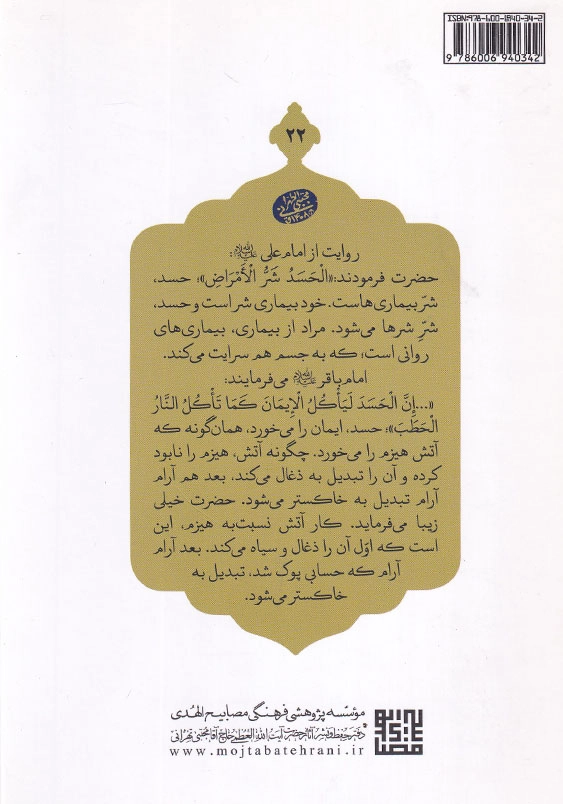 ISBN:978-600-6940-34-2
9 786006 940342
۲۲
روایت از امام علی علیه‌السلام:
حضرت فرمودند: «الْحَسَدُ شَرُّ الْأَمْرَاضِ»؛ حسد،
شرّ بیماری‌هاست. خود بیماری شر است و حسد،
شرِّ شرها می‌شود. مراد از بیماری، بیماری‌های
روانی است؛ که به جسم هم سرایت می‌کند.
امام باقر علیه‌السلام می‌فرمایند:
«...إِنَّ الْحَسَدَ لَيَأْكُلُ الْإِيمَانَ كَمَا تَأْكُلُ النَّارُ
الْحَطَبَ»؛ حسد، ایمان را می‌خورد، همان‌گونه که
آتش هیزم را می‌خورد. چگونه آتش، هیزم را نابود
کرده و آن را تبدیل به ذغال می‌کند، بعد هم آرام
آرام تبدیل به خاکستر می‌شود. حضرت خیلی
زیبا می‌فرماید. کار آتش نسبت‌به هیزم، این
است که اوّل آن را ذغال و سیاه می‌کند. بعد آرام
آرام که حسابی پوک شد، تبدیل به
خاکستر می‌شود.
مؤسّسه پژوهشی فرهنگی مصابیح الهدی
دفتر حفظ و نشر آثار حضرت آیت الله العظمی حاج آقا مجتبی تهرانی
www.mojtabatehrani.ir